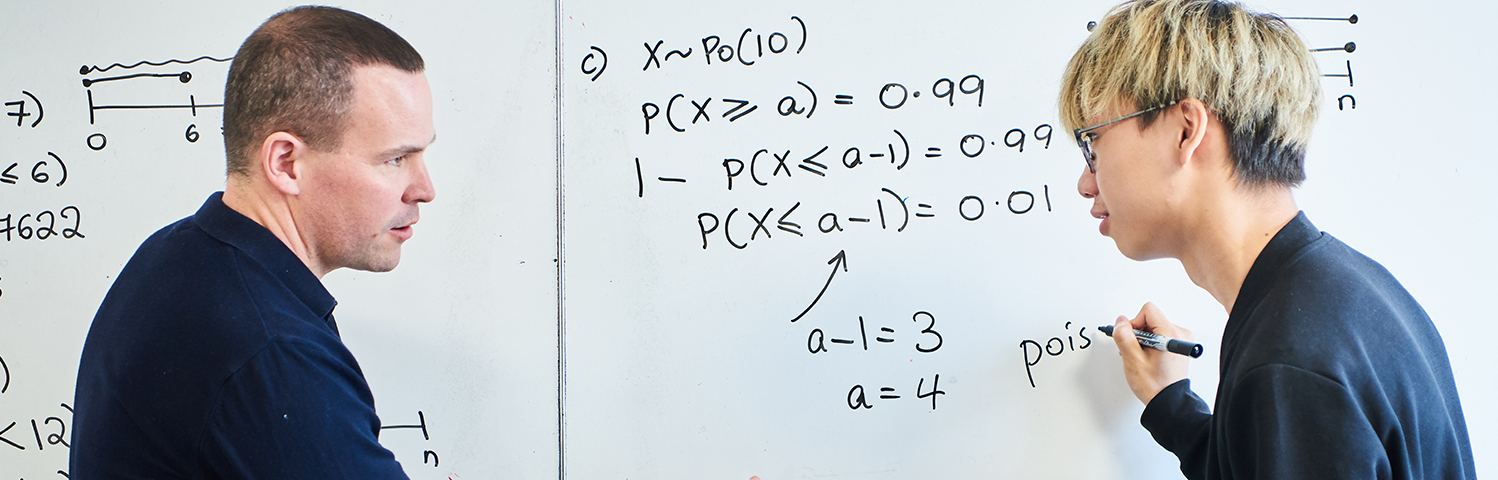 7)
0 6
≤ 6)
7622
< 12)
n
c) X~Po(10)
P(X ⩾ a) = 0.99
1 - P(X ⩽ a-1) = 0.99
P(X ⩽ a-1) = 0.01
a-1 = 3
a = 4
pois
n